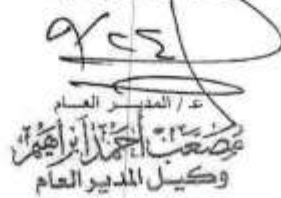 ٩/٢٤
ع / المديـر العـام
مصعب أحمد إبراهيم
وكيل المدير العام